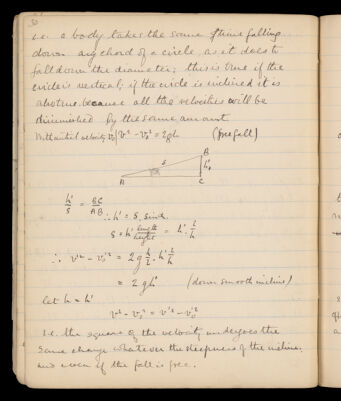 i.e. a body takes the same time falling
down any chord of a circle, as it does to
fall down the diameter; this is true if the
circle is vertical; if the circle is inclined it is
also true because all the velocities will be
diminished by the same amount
With initial velocity v₀ | v² - v₀² = 2gh (free fall)
B
s h'
A C
h'/s = BC/AB
∴ h' = s. sin α.
s = h' length/height = h'. l/h
∴ v'² - v₀'² = 2g h/l . h' l/h
= 2gh' (down smooth incline)
Let h = h'
v² - v₀² = v'² - v₀'²
i.e. the square of the velocity undergoes the
same change whatever the steepness of the incline,
and even if the fall is free.